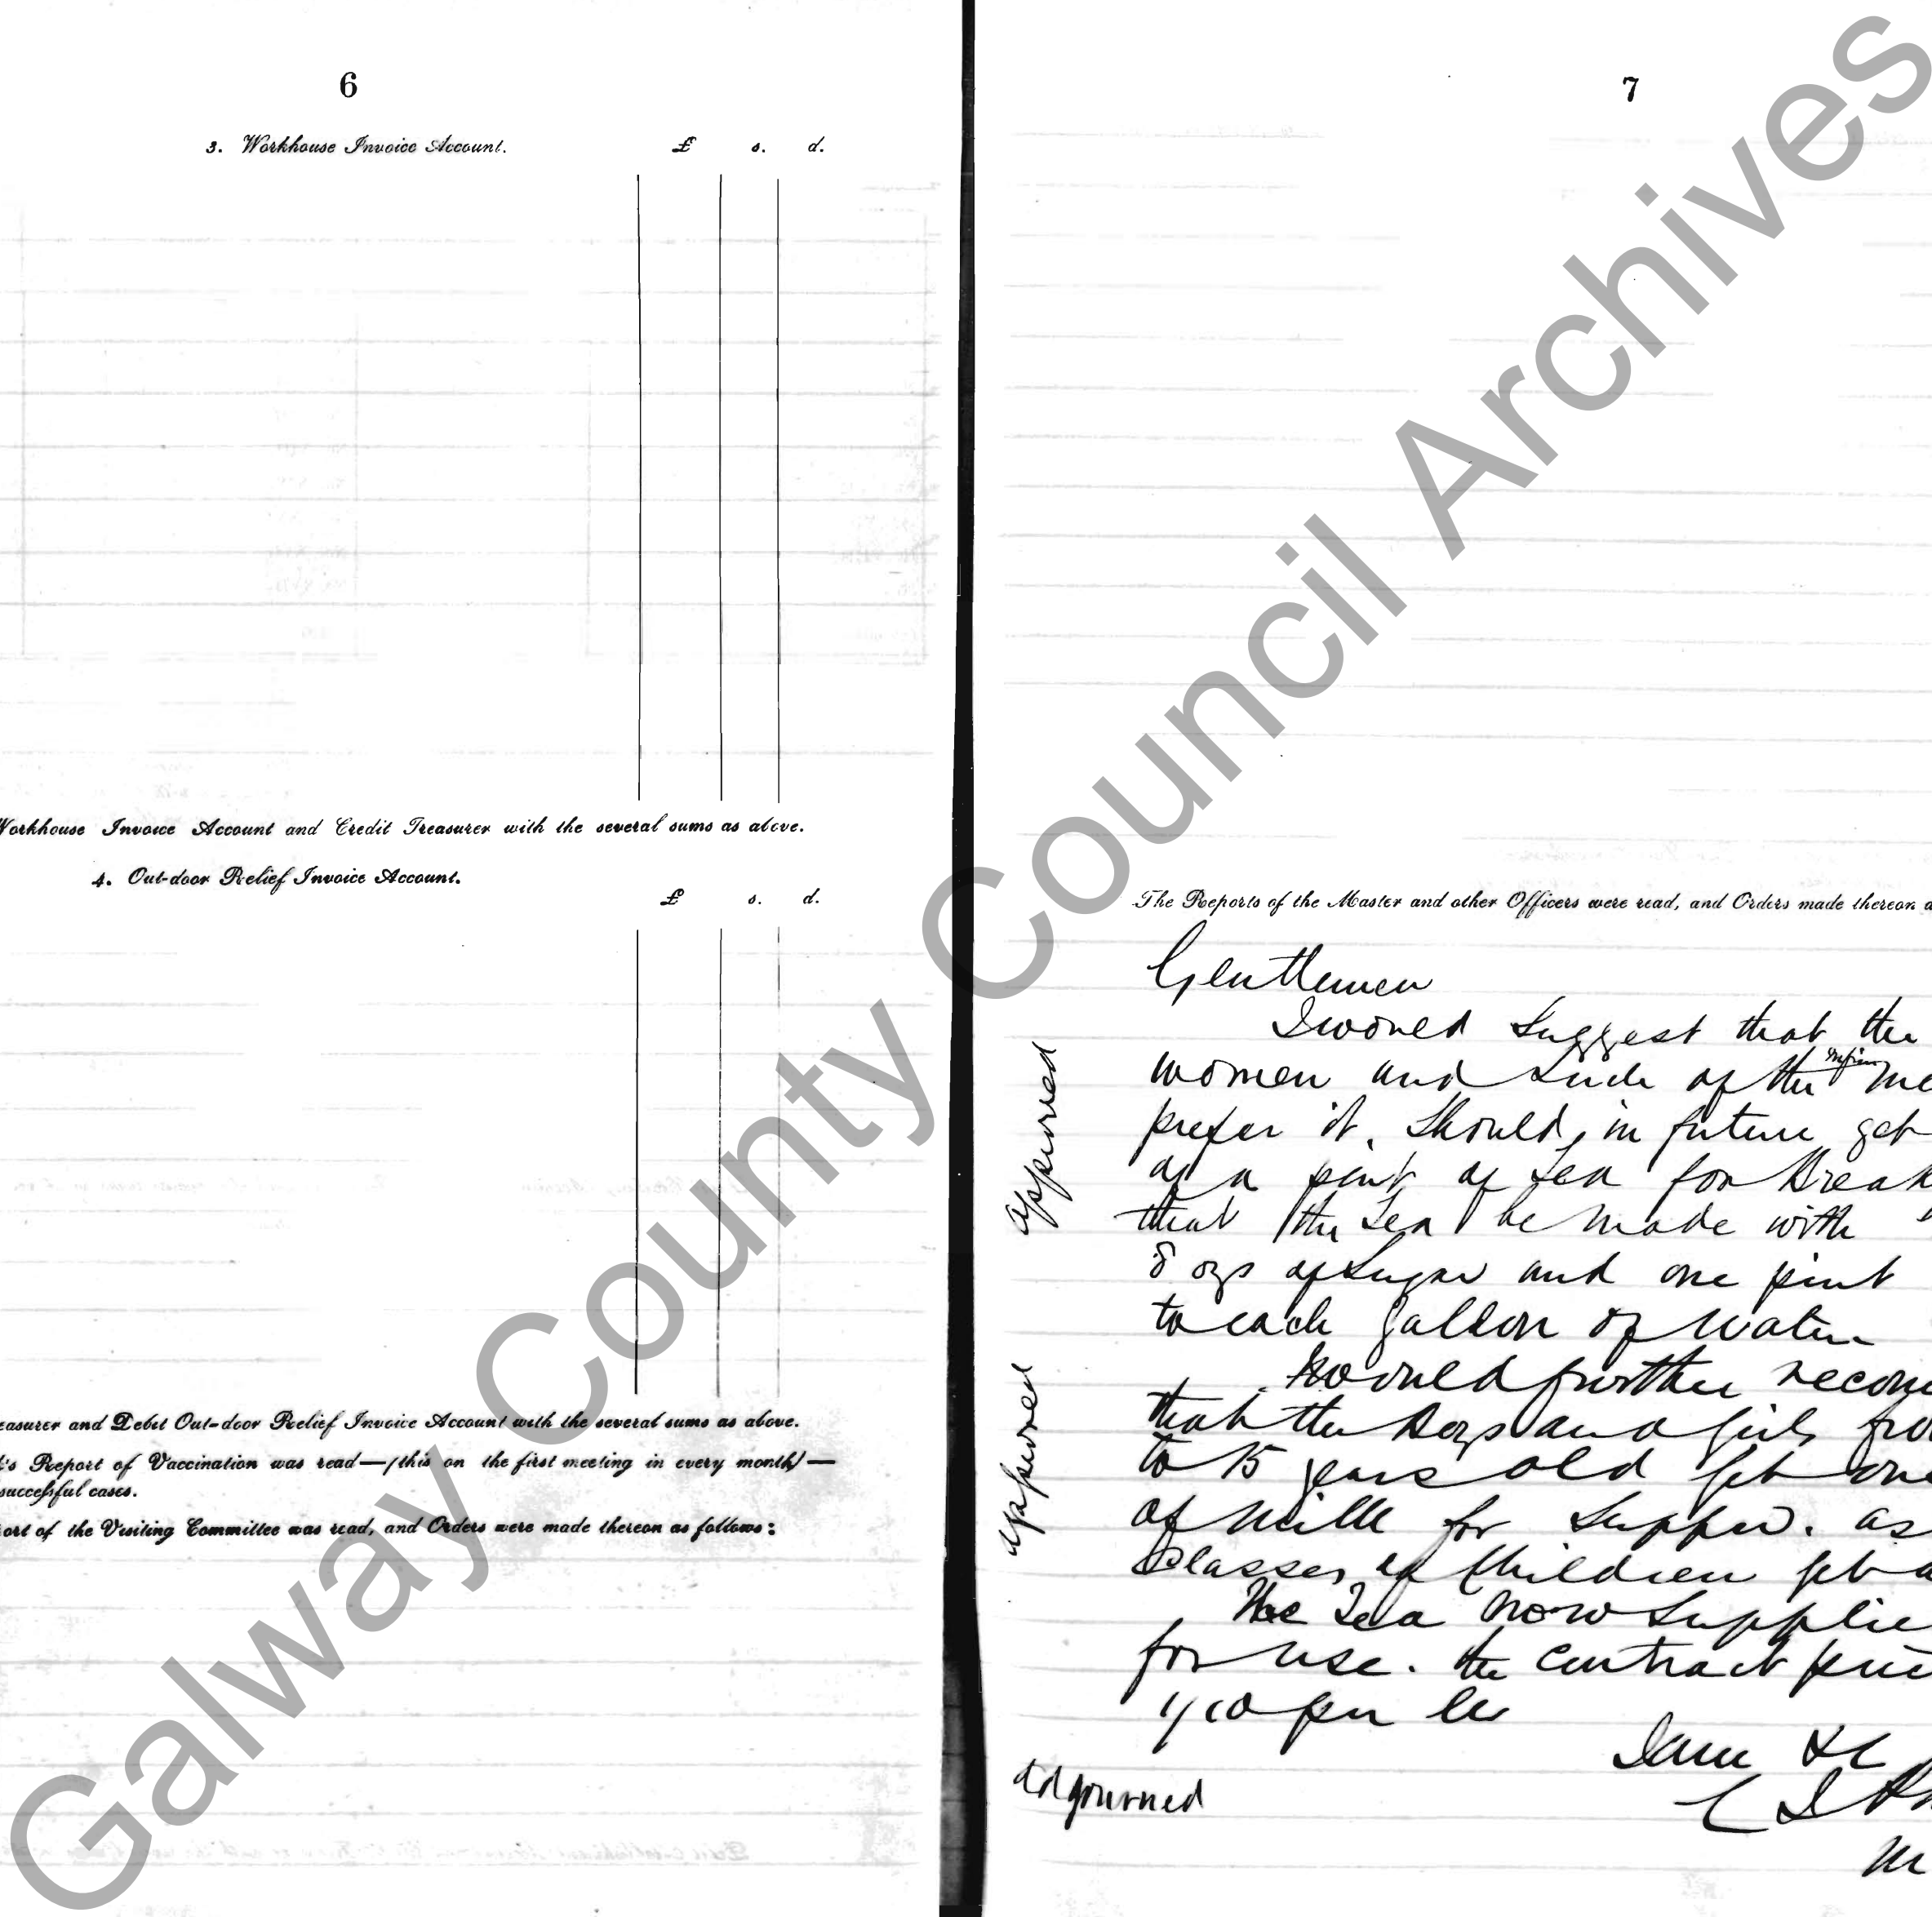 6
3. Workhouse Invoice Account. £ s. d.
Workhouse Invoice Account and Credit Treasurer with the several sums as above.
4. Out-door Relief Invoice Account.
£ s. d.
easurer and Debit Out-door Relief Invoice Account with the several sums as above.
's Report of Vaccination was read—(this on the first meeting in every month)—
successful cases.
ort of the Visiting Committee was read, and Orders were made thereon as follows:
7
The Reports of the Master and other Officers were read, and Orders made thereon a
Gentlemen
I would suggest that the
women and such of the infirm me
prefer it, should, in future get
of a pint of tea for Break
that the tea be made with
8 ozs of sugar and one pint
to each gallon of water
approved
Would further recom
that the boys and girls fro
to 15 years old get one
of milk for supper. as
classes of children get a
approved
The Tea now supplie
for use. the contract pric
1/10 per lb
adjourned
Galway County Council Archives